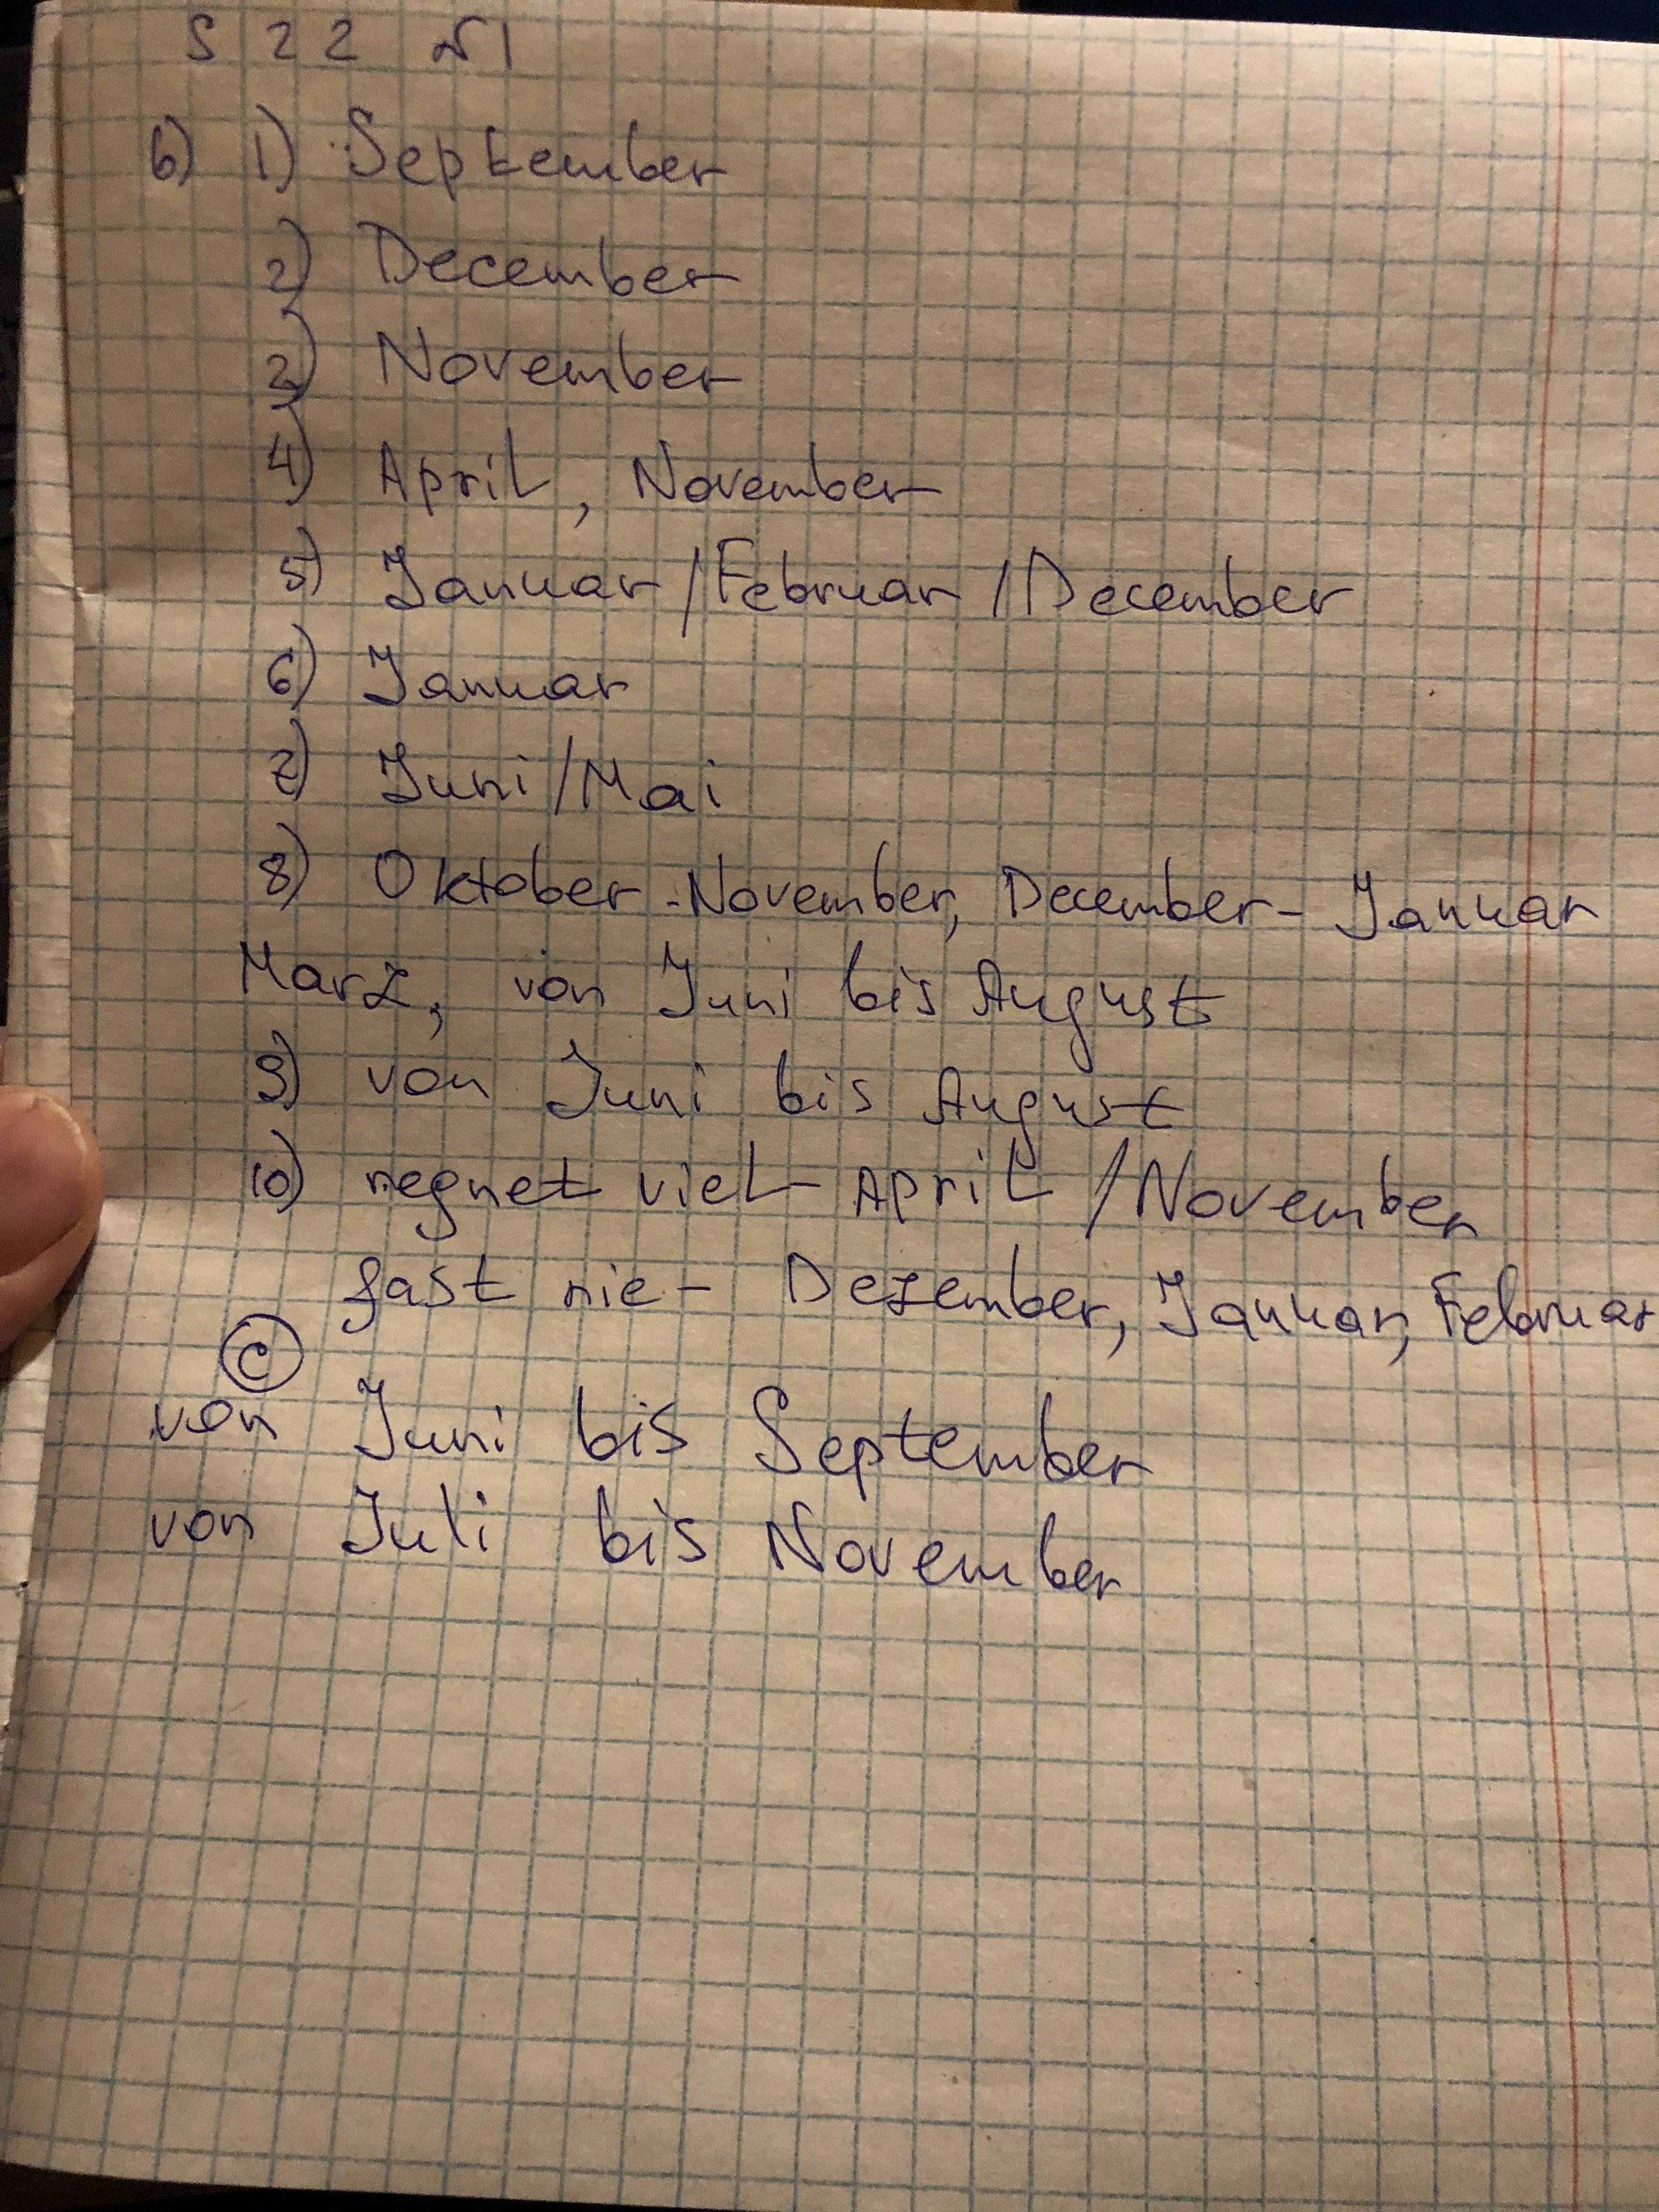 S 22 №1
b) 1) September
2) December
3) November
4) April, November
5) Januar /Februar /December
6) Januar
7) Juni/Mai
8) Oktober-November, December-Januar
Marz, von Juni bis August
9) von Juni bis August
10) regnet viel April /November
fast nie - Dezember, Januar, Februar
C
von Juni bis September
von Juli bis November